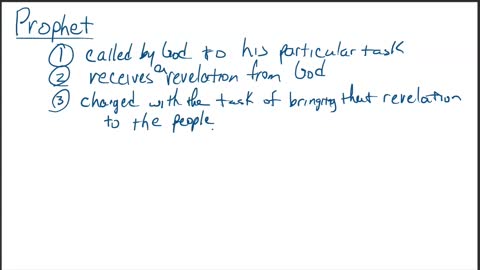 Prophet
① called by God to his particular task
② receives a revelation from God
③ charged with the task of bringing that revelation
to the people.